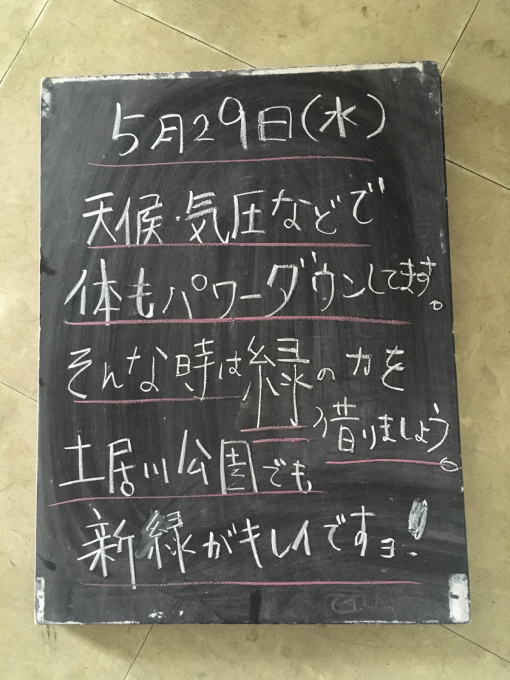 5月29日(水)
天候・気圧などで
体もパワーダウンしてます。
そんな時は緑の力を
借りましょう。
土居川公園でも
新緑がキレイですョ!